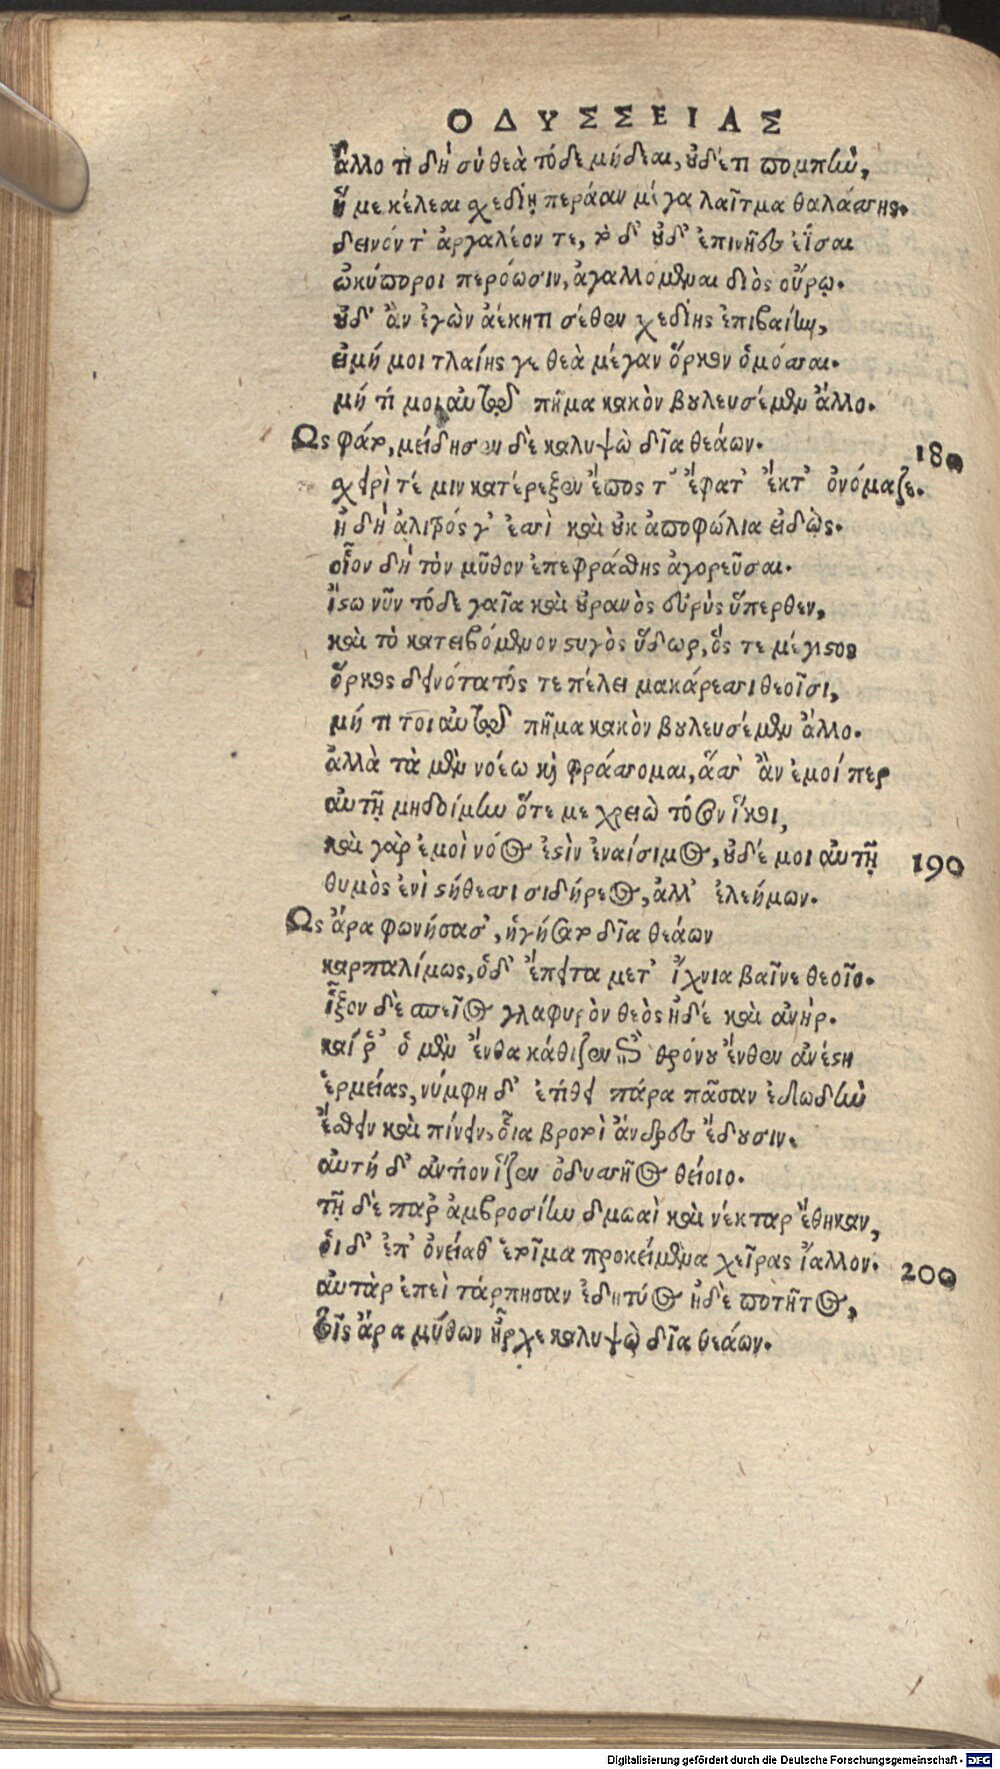 ΟΔΥΣΣΕΙΑΣ
ἄλλο τι δὴ σὺ θεὰ τόδε μήδεαι, οὐδέ τι πομπὴν,
ἥ με κέλεαι σχεδίῃ περάαν μέγα λαῖτμα θαλάσσης.
δεινόν τ' ἀργαλέον τε, τὸ δ' οὐδ' ἐπινῆες ἐΐσαι
ὠκύποροι περόωσιν, ἀγαλλόμεναι διὸς οὔρῳ.
οὐδ' ἂν ἐγὼν ἀέκητι σέθεν σχεδίης ἐπιβαίην,
εἰμή μοι τλαίης γε θεὰ μέγαν ὅρκον ὀμόσσαι.
μή τί μοι αὐτῷ πῆμα κακὸν βουλευσέμεν ἄλλο.
Ως φάτο, μείδησεν δὲ καλυψὼ δῖα θεάων. 180
χειρὶ τέ μιν κατέρεξεν ἔπος τ' ἔφατ' ἔκ τ' ὀνόμαζε.
ἦ δὴ ἀλιτρός γ' ἐσσὶ καὶ οὐκ ἀποφώλια εἰδὼς.
οἷον δὴ τὸν μῦθον ἐπεφράσθης ἀγορεῦσαι.
ἴστω νῦν τόδε γαῖα καὶ οὐρανὸς εὐρὺς ὕπερθεν,
καὶ τὸ κατειβόμενον στυγὸς ὕδωρ, ὅς τε μέγιστος
ὅρκος δεινότατός τε πέλει μακάρεσσι θεοῖσι,
μή τι τοι αὐτῷ πῆμα κακὸν βουλευσέμεν ἄλλο.
ἀλλὰ τὰ μὲν νοέω καὶ φράσσομαι, ἅσσ' ἂν ἐμοί περ
αὐτῇ μηδοίμην ὅτε με χρειὼ τόσον ἵκοι,
καὶ γὰρ ἐμοὶ νόος ἐστὶν ἐναίσιμος, οὐδέ μοι αὐτῇ 190
θυμὸς ἐνὶ στήθεσσι σιδήρεος, ἀλλ' ἐλεήμων.
Ως ἄρα φωνήσασ', ἡγήσατο δῖα θεάων
καρπαλίμως, ὁδ' ἔπειτα μετ' ἴχνια βαῖνε θεοῖο.
ἷξον δὲ σπεῖος γλαφυρὸν θεὸς ἠδέ καὶ ἀνήρ.
καί ῥ' ὁ μὲν ἔνθα κάθιζεν ἐπὶ θρόνου ἔνθεν ἀνέστη
ἑρμείας, νύμφη δ' ἐτίθει πάρα πᾶσαν ἐδωδὴν
ἔσθειν καὶ πίνειν, οἷα βροτοὶ ἄνδρες ἔδουσιν.
αὐτή δ' ἀντίον ἷζεν ὀδυσσῆος θείοιο.
τῇ δὲ παρ' ἀμβροσίην δμωαὶ καὶ νέκταρ ἔθηκαν,
οἱ δ' ἐπ' ὀνείαθ' ἑτοῖμα προκείμενα χεῖρας ἴαλλον. 200
αὐτὰρ ἐπεὶ τάρπησαν ἐδητύος ἠδὲ ποτῆτος,
τοῖς ἄρα μύθων ἦρχε καλυψὼ δῖα θεάων.
Digitalisierung gefördert durch die Deutsche Forschungsgemeinschaft - DFG